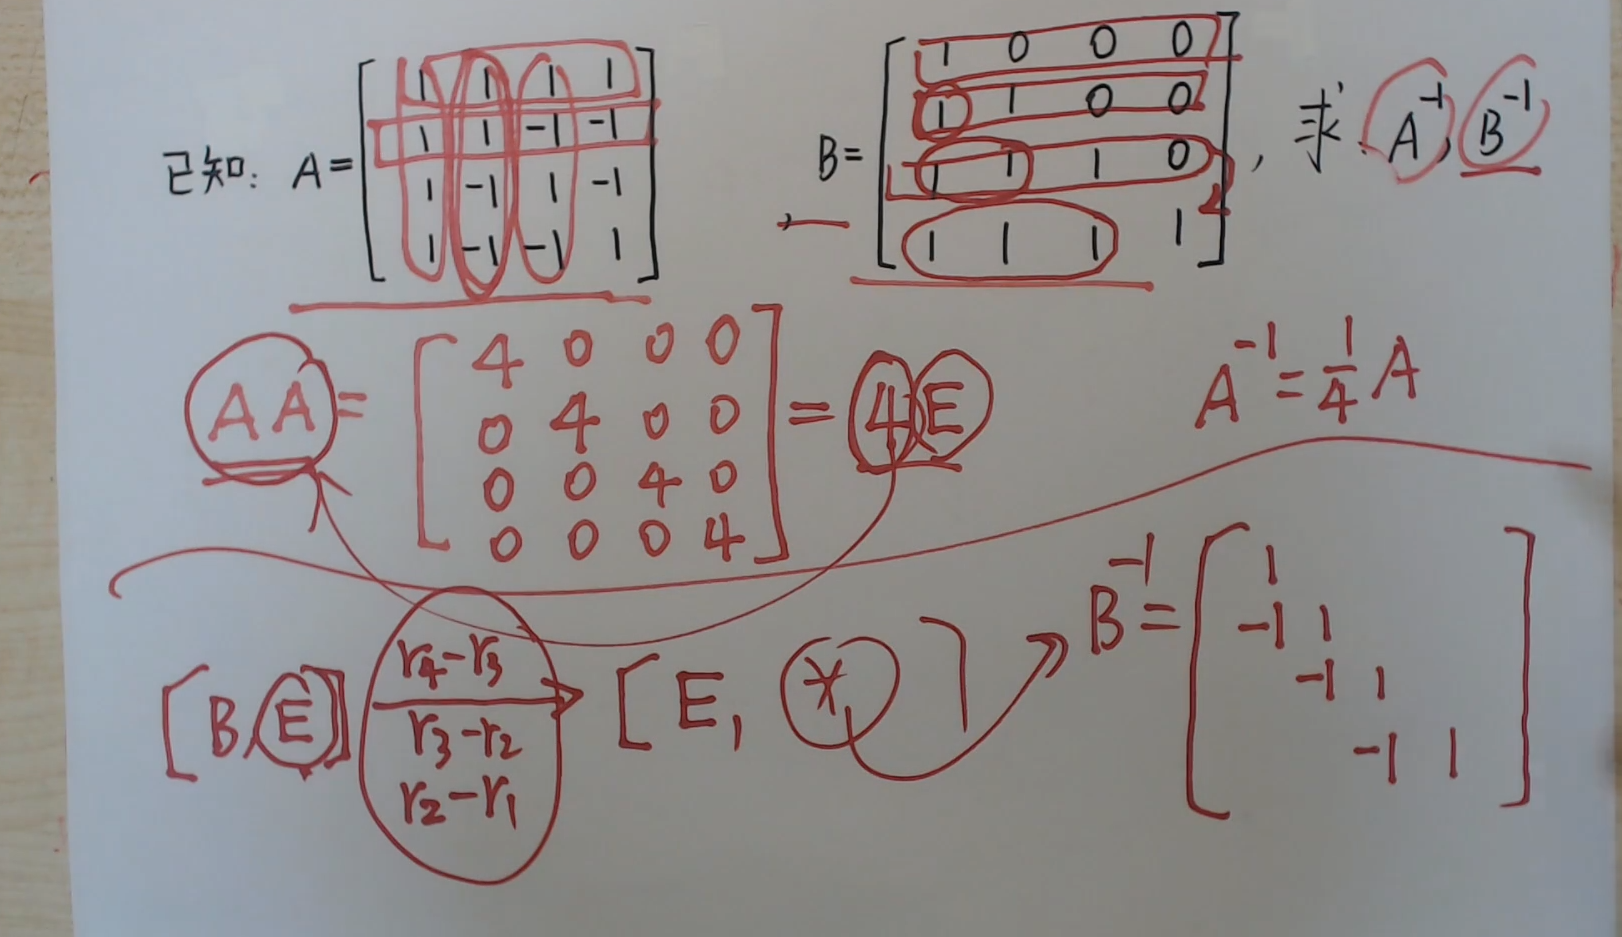 已知: A= [ 1 1 1 1
1 1 -1 -1
1 -1 1 -1
1 -1 -1 1 ]
B= [ 1 0 0 0
1 1 0 0
1 1 1 0
1 1 1 1 ] , 求 A⁻¹, B⁻¹
AA= [ 4 0 0 0
0 4 0 0
0 0 4 0
0 0 0 4 ] = 4E
A⁻¹ = 1/4 A
[ B, E ] r4-r3
r3-r2
r2-r1 → [ E, * ]
B⁻¹ = [ 1
-1 1
-1 1
-1 1 ]